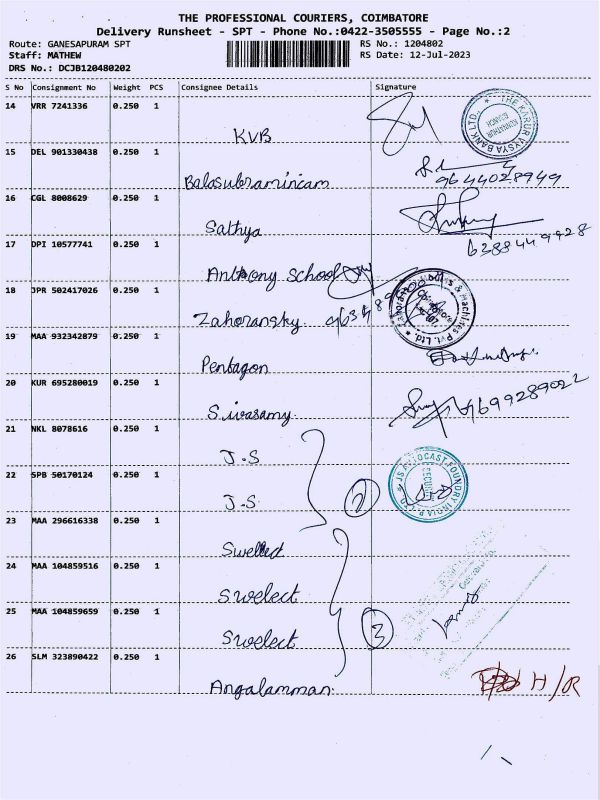 THE PROFESSIONAL COURIERS, COIMBATORE
Delivery Runsheet - SPT - Phone No.:0422-3505555 - Page No.:2
Route: GANESAPURAM SPT RS No.: 1204802
Staff: MATHEW RS Date: 12-Jul-2023
DRS No.: DCJB120480202
S No Consignment No Weight PCS Consignee Details Signature
14 VRR 7241336 0.250 1
KVB
THE KARUR VYSYA BANK LTD.
BRANCH
15 DEL 901330438 0.250 1
Balasubraminiam 9644028949
16 CGL 8008629 0.250 1
Sathya
6388449928
17 DPI 10577741 0.250 1
Anthony School
18 JPR 502417026 0.250 1
Zahoransky
& Machines Pvt. Ltd.
19 MAA 932342879 0.250 1
Pentagon
20 KUR 695280019 0.250 1
Sivasamy 9699289022
21 NKL 8078616 0.250 1
J.S
22 SPB 50170124 0.250 1
J.S
2
JS AUTOCAST FOUNDRY INDIA P. LTD
SECURITY
23 MAA 296616338 0.250 1
Swelled
24 MAA 104859516 0.250 1
Swelect
25 MAA 104859659 0.250 1
Swelect
3
26 SLM 323890422 0.250 1
Angalamman
H/OR